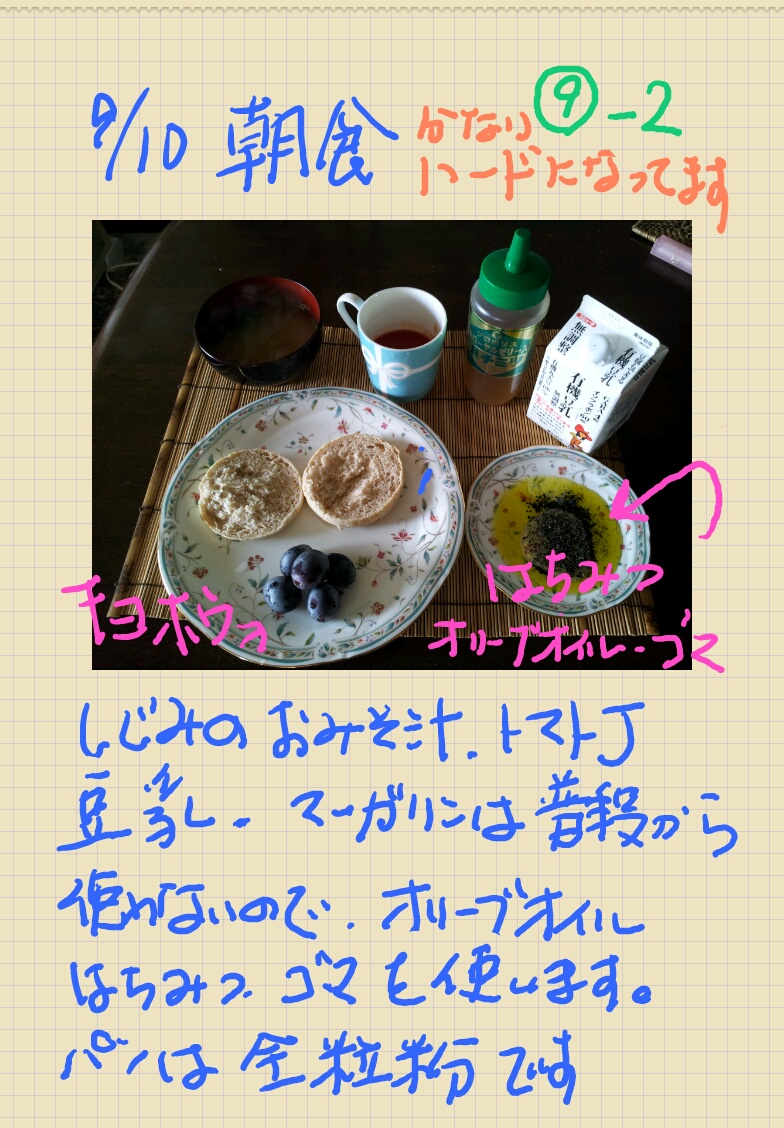 9/10 朝食
かなり ⑨-2
ハードになってます
プロポリス
ローヤルゼリー入
ハチミツ
無調整
有機豆乳
はちみつ
オリーブオイル・ゴマ
しじみのおみそ汁、トマトJ
豆乳、マーガリンは普段から
使わないので、オリーブオイル
はちみつ、ゴマを使います。
パンは全粒粉です